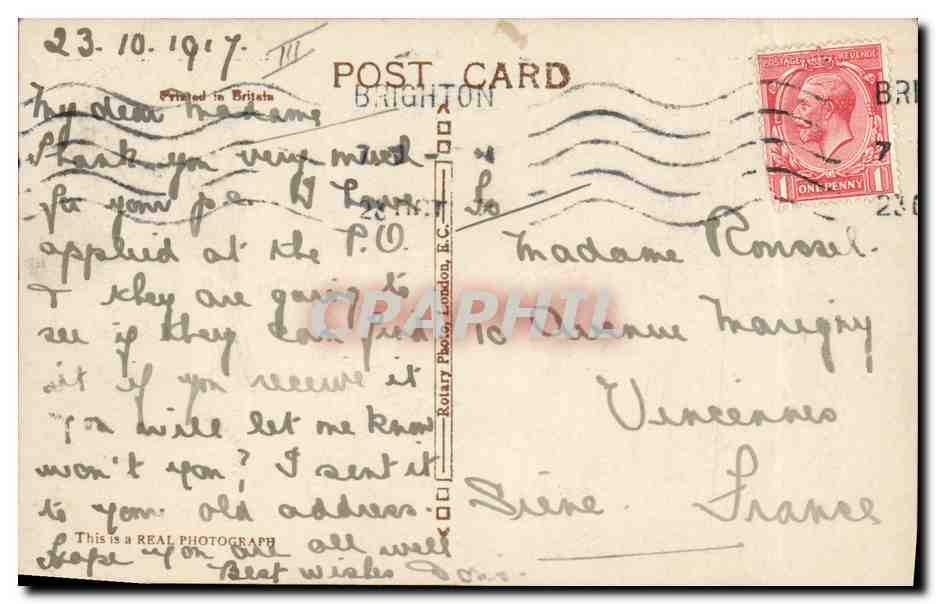 23.10.1917.
III
POST CARD
Printed in Britain
BRIGHTON
BRI
7
23 O
POSTAGE REVENUE
1 ONE PENNY 1
My dear Madame
Thank you very much
for your p.c. I have
applied at the P.O.
& they are going to
see if they can find
it if you receive it
you will let me know
won't you? I sent it
to your old address.
Hope you are all well
Best wishes
This is a REAL PHOTOGRAPH
Rotary Photo, London, E.C.
To
Madame Roussel.
10 Avenue Marigny
Vincennes
Siene. France
CPARPHIL